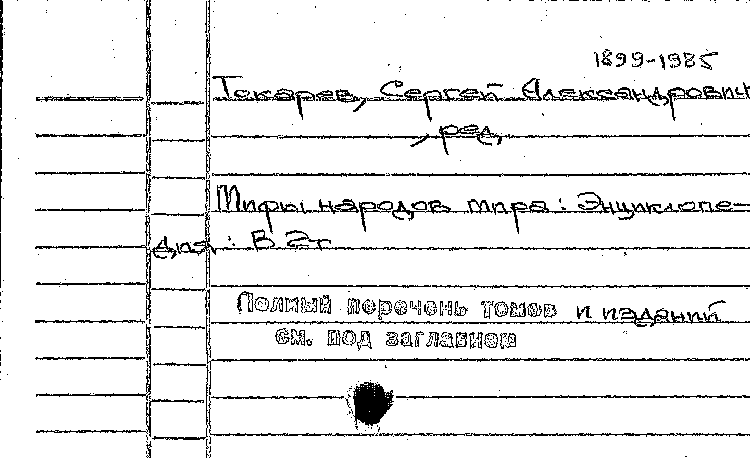 1899-1985
Токарев, Сергей Александрович
, ред.
Мифы народов мира: Энциклопе-
дия: В 2т
Полный перечень томов и изданий
см. под заглавием